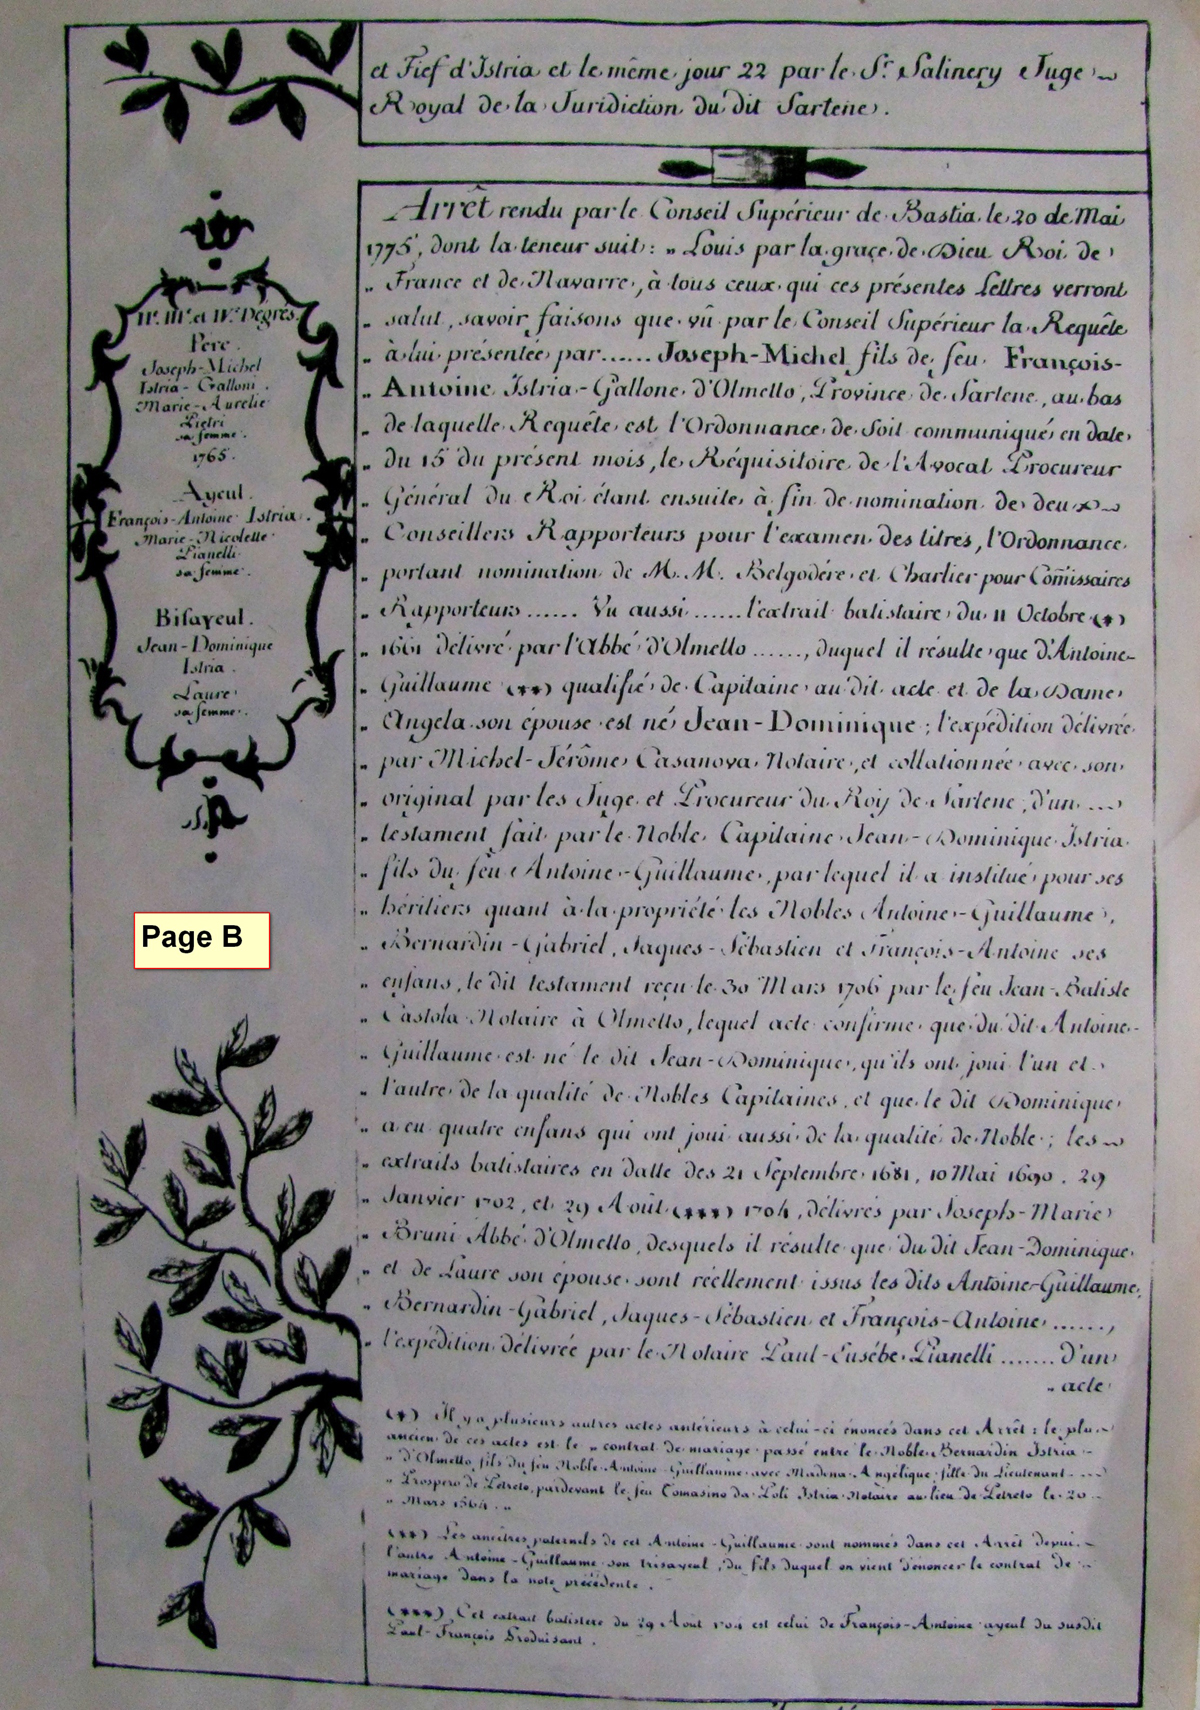 et Fief d'Istria et le même jour 22 par le Sr. Salinery Juge
Royal de la Juridiction du dit Sartene.
Arrêt rendu par le Conseil Supérieur de Bastia le 20 de Mai
1775, dont la teneur suit : „ Louis par la grace de Dieu Roi de
„ France et de Navarre, à tous ceux qui ces présentes Lettres verront
„ salut, savoir faisons que vû par le Conseil Supérieur la Requête
„ à lui présentée par...... Joseph-Michel fils de feu François-
„ Antoine Istria-Gallone d'Olmello, Province de Sartene, au bas
„ de laquelle Requête est l'Ordonnance de soit communiqué en date
„ du 15 du présent mois, le Réquisitoire de l'Avocat Procureur
„ Général du Roi étant ensuite à fin de nomination de deux
„ Conseillers Rapporteurs pour l'examen des titres, l'Ordonnance
„ portant nomination de M. M. Belgodére et Charlier pour Com̃issaires
„ Rapporteurs ...... Vu aussi ...... l'extrait batistaire du 11 Octobre (*)
„ 1661 délivré par l'Abbé d'Olmello ......, duquel il résulte que d'Antoine-
„ Guillaume (**) qualifié de Capitaine au dit acte et de la Dame
„ Angela son épouse est né Jean-Dominique ; l'expédition délivrée
„ par Michel-Jérôme Casanova Notaire, et collationnée avec son
„ original par les Juge et Procureur du Roy de Sartene, d'un ...
„ testament fait par le Noble Capitaine Jean-Dominique Istria
„ fils du feu Antoine-Guillaume, par lequel il a institué pour ses
„ héritiers quant à la propriété les Nobles Antoine-Guillaume,
„ Bernardin-Gabriel, Jaques-Sébastien et François-Antoine ses
„ enfans, le dit testament reçu le 30 Mars 1706 par le feu Jean-Batiste
„ Castola Notaire à Olmello, lequel acte confirme que du dit Antoine-
„ Guillaume est né le dit Jean-Dominique, qu'ils ont joui l'un et
„ l'autre de la qualité de Nobles Capitaines, et que le dit Dominique
„ a eu quatre enfans qui ont joui aussi de la qualité de Noble ; les
„ extraits batistaires en datte des 21 Septembre 1681, 10 Mai 1690, 29
„ Janvier 1702, et 29 Août (***) 1704, délivrés par Joseph-Marie
„ Bruni Abbé d'Olmello, desquels il résulte que du dit Jean-Dominique
„ et de Laure son épouse sont réellement issus les dits Antoine-Guillaume,
„ Bernardin-Gabriel, Jaques-Sébastien et François-Antoine ......,
„ l'expédition délivrée par le Notaire Paul-Eusébe Pianelli ....... d'un
„ acte
(*) Il y a plusieurs autres actes antérieurs à celui-ci énoncés dans cet Arrêt : le plus
ancien de ces actes est le „ contrat de mariage passé entre le Noble Bernardin Istria
„ d'Olmello fils du feu Noble Antoine-Guillaume avec Madona Angélique fille du Lieutenant
„ Prospero de Petreto, pardevant le feu Comasino da Poli Istria Notaire au lieu de Petreto le 20
„ Mars 1564. „
(**) Les ancêtres paternels de cet Antoine-Guillaume sont nommés dans cet Arrêt depuis
l'autre Antoine-Guillaume son trisayeul, du fils duquel on vient d'énoncer le contrat de
mariage dans la note précédente.
(***) Cet extrait batistere du 29 Aout 1704 est celui de François-Antoine ayeul du susdit
Paul-François Produisant.
IIe. IIIe. et IVe. Degrés.
Pere.
Joseph-Michel
Istria-Galloni.
Marie-Aurelie
Pietri
sa femme.
1765.
Ayeul.
François-Antoine Istria.
Marie-Nicolette
Pianelli
sa femme.
Bisayeul.
Jean-Dominique
Istria.
Laure
sa femme.
Page B